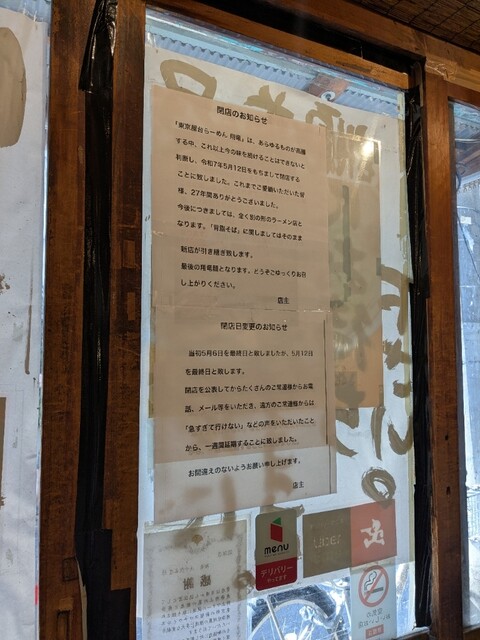 閉店のお知らせ
「東京屋台らーめん 翔竜」は、あらゆるものが高騰
する中、これ以上今の味を続けることはできないと
判断し、令和7年5月12日をもちまして閉店する
ことに致しました。これまでご愛顧いただいた皆
様、27年間ありがとうございました。
今後につきましては、全く別の形のラーメン店と
なります。「背脂そば」に関しましてはそのまま
新店が引き継ぎ致します。
最後の翔竜麺となります。どうぞごゆっくりお召
し上がりください。
店主
閉店日変更のお知らせ
当初5月6日を最終日と致しましたが、5月12日
を最終日と致します。
閉店を公表してからたくさんのご常連様からお電
話、メール等をいただき、遠方のご常連様からは
「急すぎて行けない」などの声をいただいたこと
から、一週間延期することに致しました。
お間違えのないようお願い申し上げます。
店主
menu
デリバリー
やってます
感謝